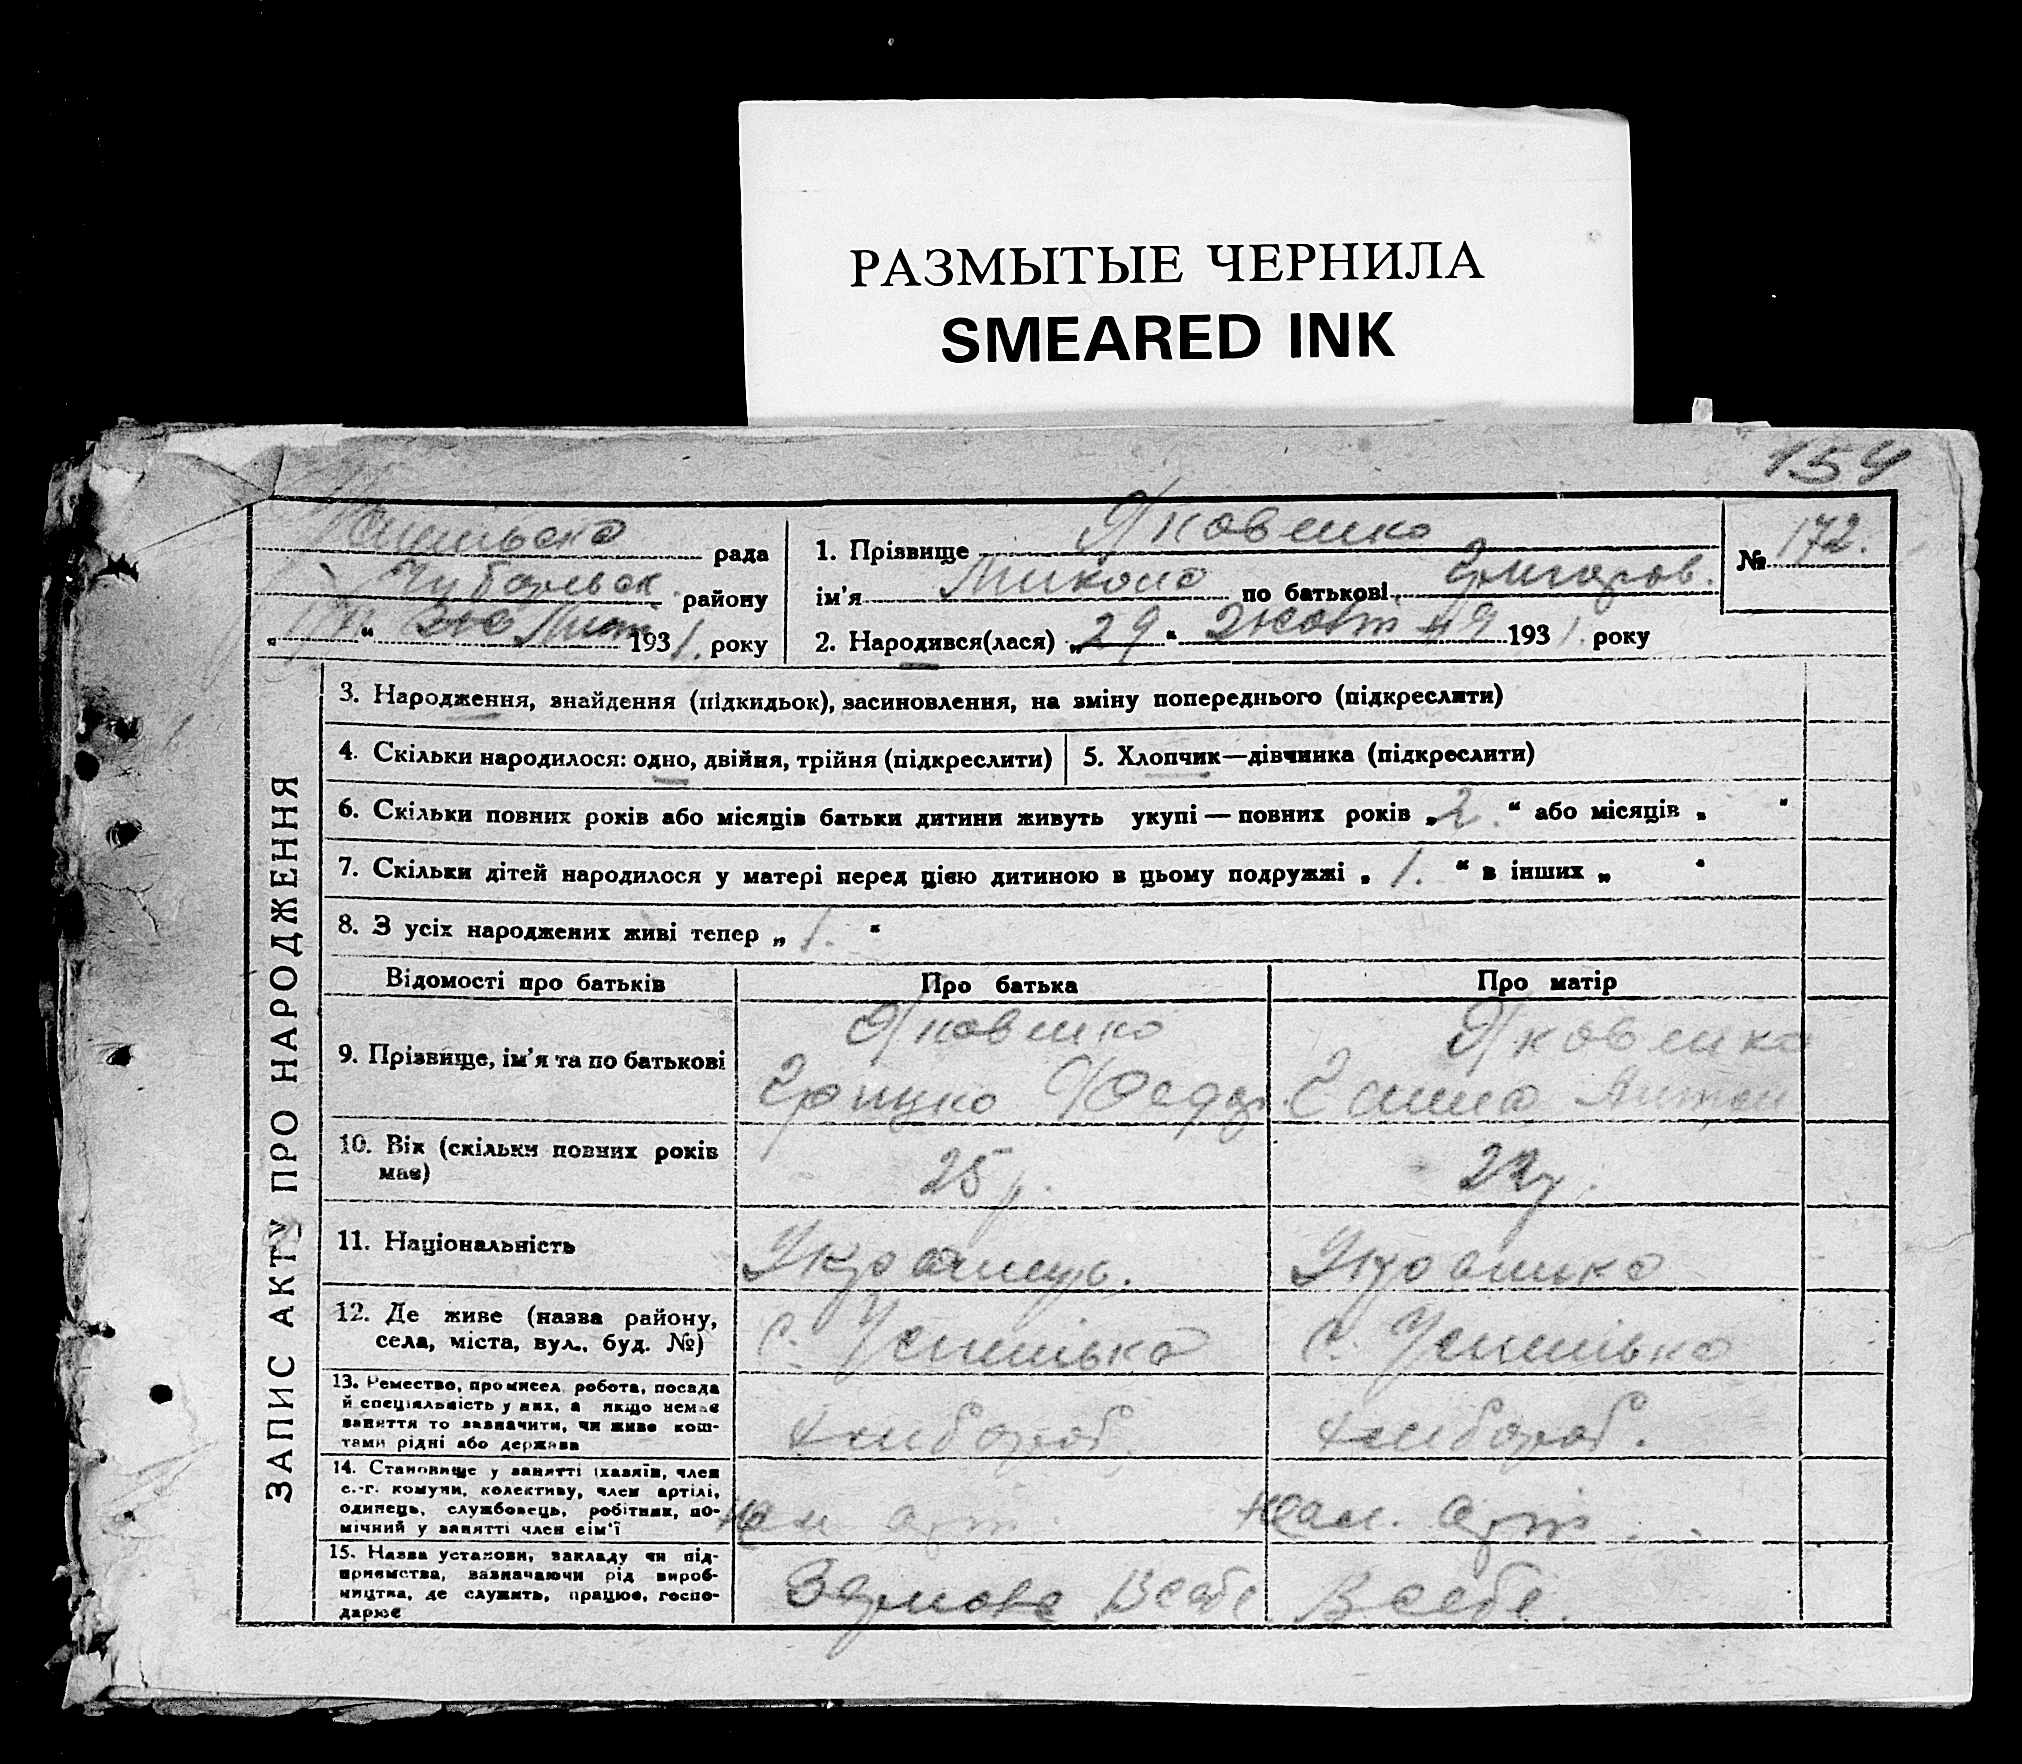 РАЗМЫТЫЕ ЧЕРНИЛА
SMEARED INK
154
рада
Чубарівськ. району
193 1. року
1. Прізвище Яковенко
ім'я Микола по батькові Григоров.
2. Народився(лася) „29“ 193 1. року
№ 172.
ЗАПИС АКТУ ПРО НАРОДЖЕННЯ
3. Народження, знайдення (підкидьок), засиновлення, на зміну попереднього (підкреслити)
4. Скільки народилося: одно, двійня, трійня (підкреслити)
5. Хлопчик—дівчинка (підкреслити)
6. Скільки повних років або місяців батьки дитини живуть укупі — повних років „2.“ або місяців „ “
7. Скільки дітей народилося у матері перед цією дитиною в цьому подружжі „1.“ в інших „ “
8. З усіх народжених живі тепер „1.“
Відомості про батьків
Про батька
Про матір
9. Прізвище, ім'я та по батькові
Яковенко
Грицко Федор.
Яковенко
Ганна Антон
10. Вік (скільки повних років
має)
25 р.
22 р.
11. Національність
Українець.
Українка
12. Де живе (назва району,
села, міста, вул., буд. №)
с. Успенівка
с. Успенівка
13. Ремество, промисел, робота, посада
й спеціяльність у них, а якщо немає
заняття то зазначити, чи живе кош-
тами рідні або держава
хлібороб.
хлібороб.
14. Становище у занятті (хазяїн, член
с.-г. комуни, колективу, член артілі,
одинець, службовець, робітник, по-
мічний у занятті член сім'ї
арт.
арт.
15. Назва установи, закладу чи під-
приємства, зазначаючи рід вироб-
ництва, де служить, працює, госпо-
дарює
В себе
В себе.